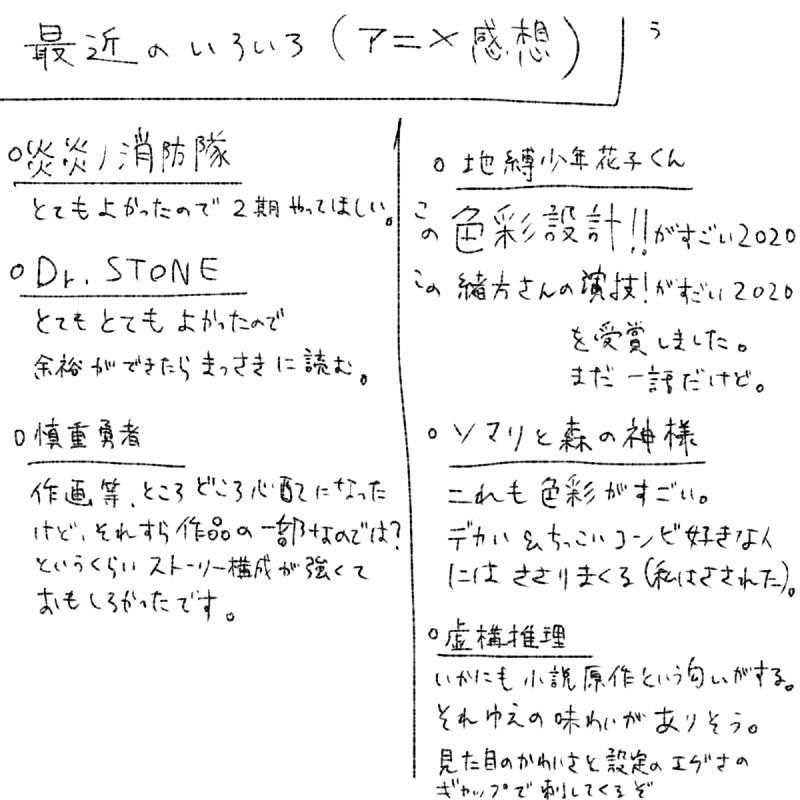 最近のいろいろ(アニメ感想)
う
○炎炎ノ消防隊
とてもよかったので2期やってほしい。
○Dr. STONE
とてもとてもよかったので
余裕ができたらまっさきに読む。
○慎重勇者
作画等、ところどころ心配になった
けど、それすら作品の一部なのでは?
というくらいストーリー構成が強くて
おもしろかったです。
○地縛少年花子くん
この色彩設計!!がすごい2020
この緒方さんの演技!がすごい2020
を受賞しました。
まだ一話だけど。
○ソマリと森の神様
これも色彩がすごい。
デカい&ちっこいコンビ好きな人
にはささりまくる(私はさされた)。
○虚構推理
いかにも小説原作という匂いがする。
それゆえの味わいがありそう。
見た目のかわいさと設定のエグさの
ギャップで刺してくるぞ